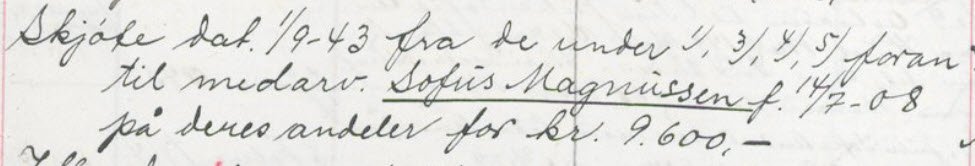 Skjøte dat. 1/9-43 fra de under 1/, 3/, 4/, 5/ foran
til medarv. Sofus Magnussen f. 14/7-08
på deres andeler for kr. 9.600,-